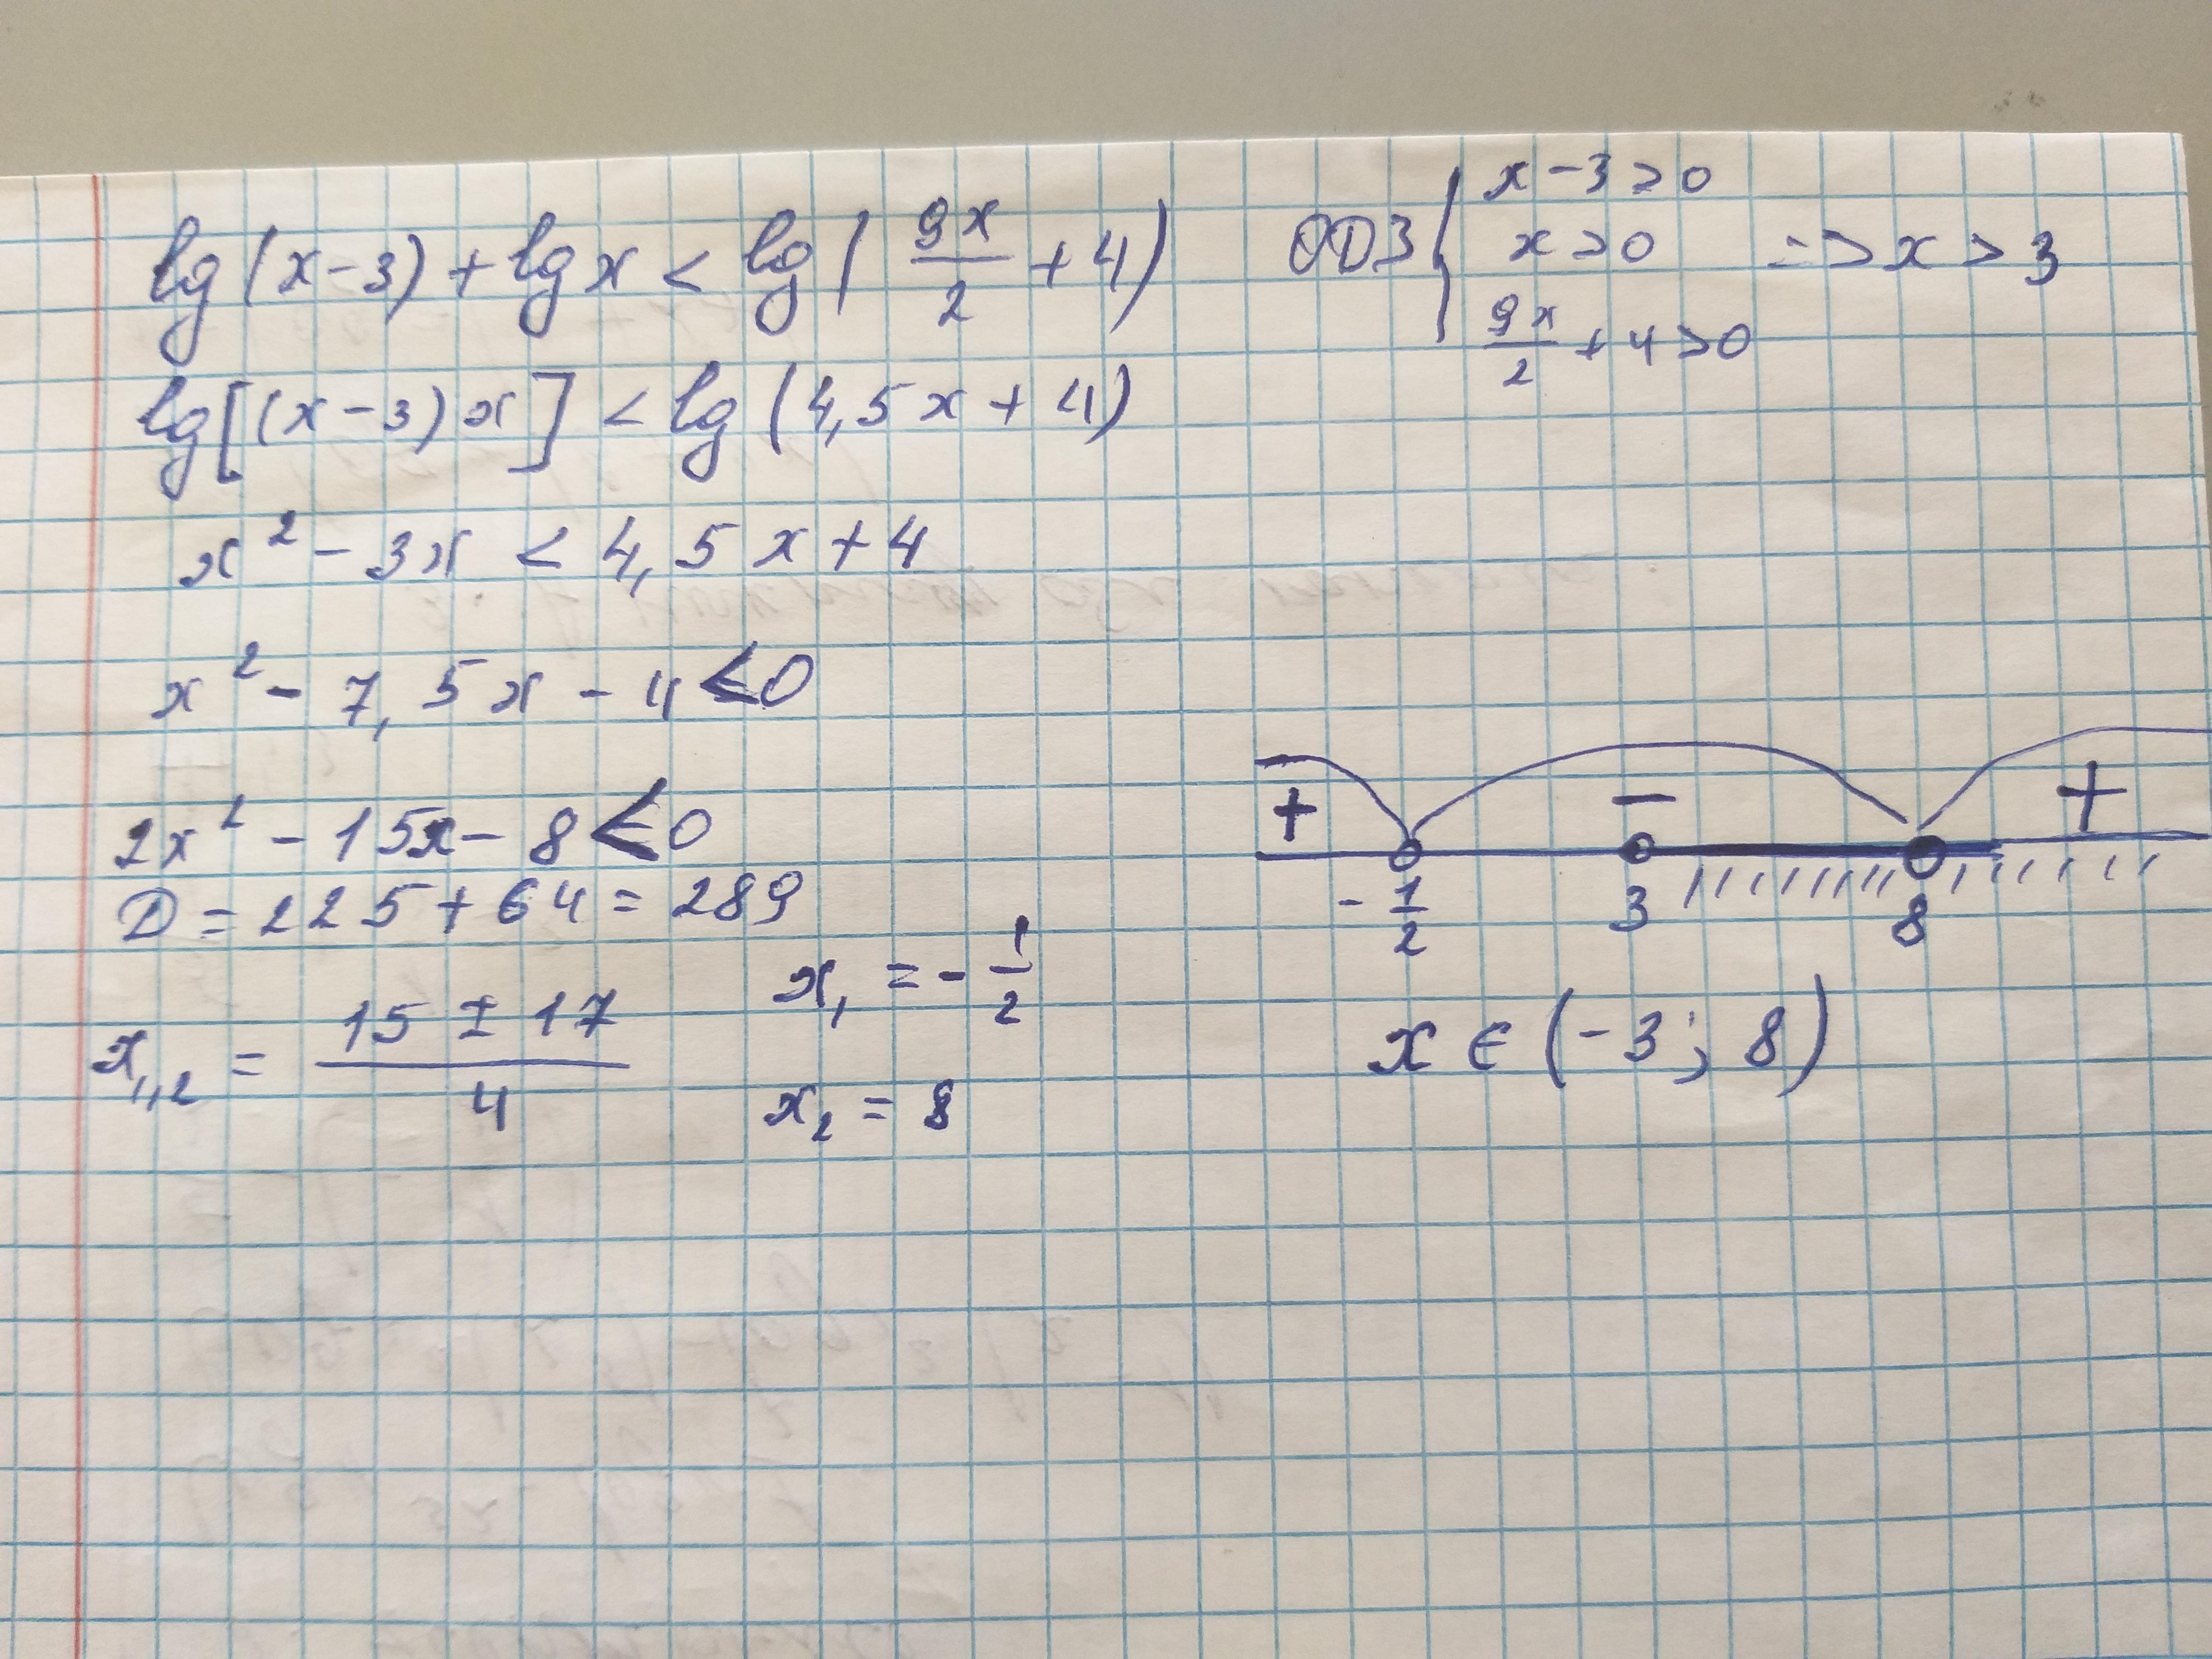 lg(x-3) + lg x < lg(9x/2 + 4)
ОДЗ { x-3 > 0
x > 0 => x > 3
9x/2 + 4 > 0
lg[(x-3)x] < lg(4,5x + 4)
x² - 3x < 4,5x + 4
x² - 7,5x - 4 < 0
2x² - 15x - 8 < 0
D = 225 + 64 = 289
x₁,₂ = (15 ± 17)/4
x₁ = -1/2
x₂ = 8
+ - +
-1/2 3 8
x ∈ (-3; 8)